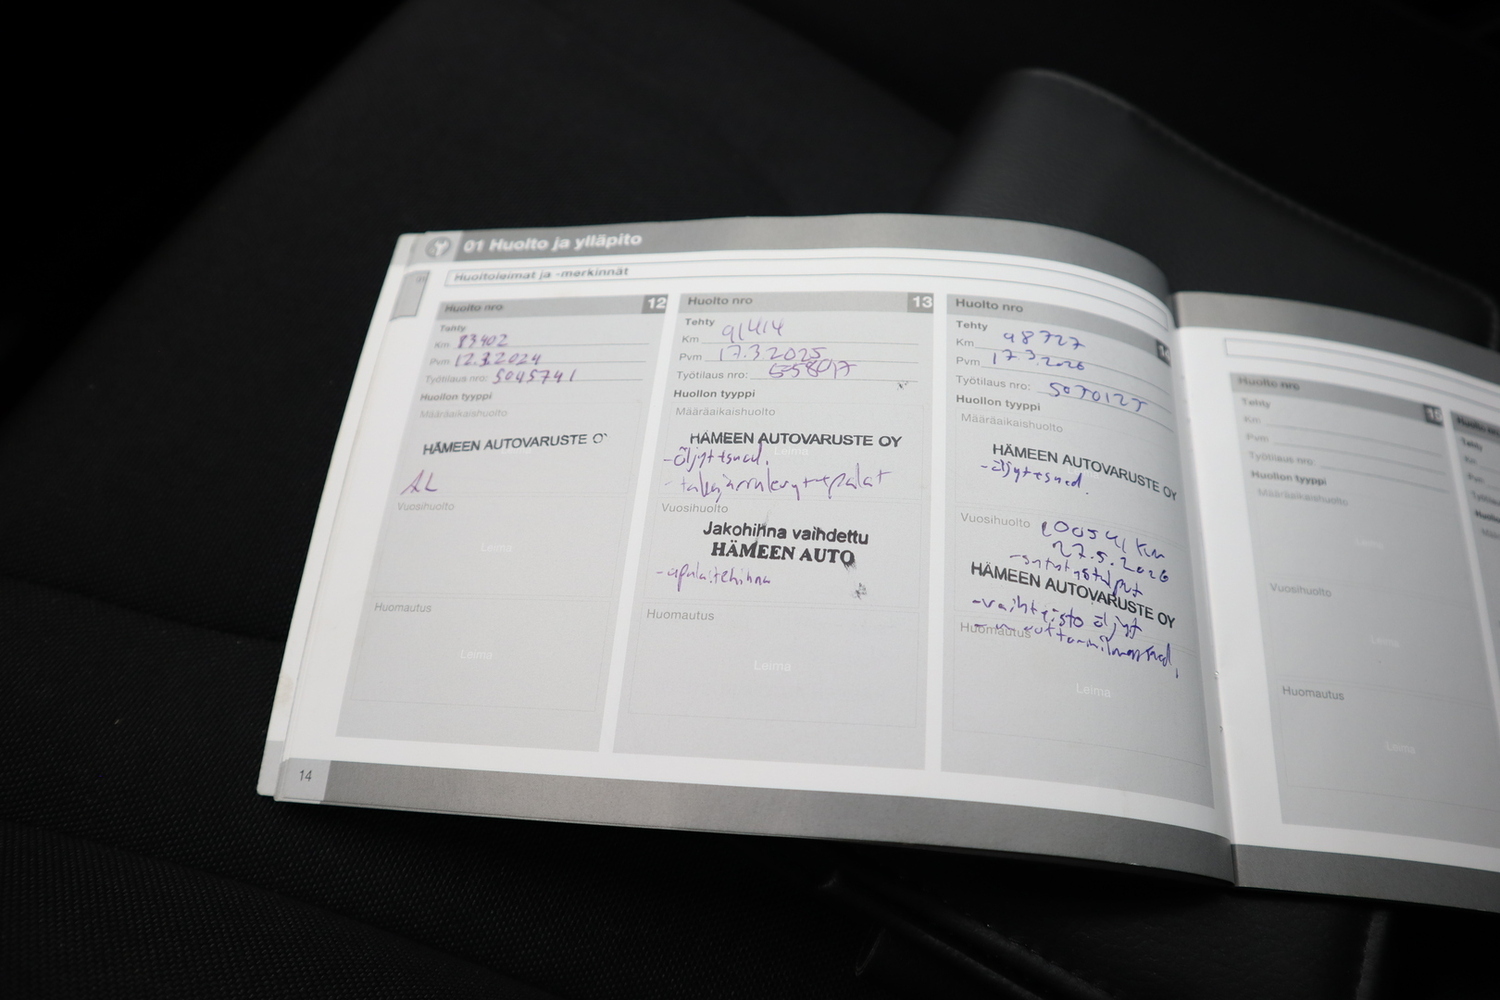 01 Huolto ja ylläpito
Huoltoleimat ja -merkinnät
Huolto nro 12
Tehty
Km 83402
Pvm 12.3.2024
Työtilaus nro: 5045741
Huollon tyyppi
Määräaikaishuolto
HÄMEEN AUTOVARUSTE OY
AL
Vuosihuolto
Leima
Huomautus
Leima
14
Huolto nro 13
Tehty
Km 91414
Pvm 17.3.2025
Työtilaus nro:
Huollon tyyppi
Määräaikaishuolto
HÄMEEN AUTOVARUSTE OY
Leima
-öljyt+suod.
-takajarrulevyt+palat
Vuosihuolto
Jakohihna vaihdettu
HÄMEEN AUTO
-apulaitehihna
Huomautus
Leima
Huolto nro 14
Tehty
Km 98727
Pvm 17.3.2026
Työtilaus nro:
Huollon tyyppi
Määräaikaishuolto
HÄMEEN AUTOVARUSTE OY
-öljyt+suod.
Vuosihuolto 100541 km
27.5.2026
-sytytystulpat
HÄMEEN AUTOVARUSTE OY
-vaihteisto öljyt
Huomautus
Leima
Huolto nro
Tehty
Km
Pvm
Työtilaus nro
Huollon tyyppi
Määräaikaishuolto
Leima
Vuosihuolto
Leima
Huomautus
Leima